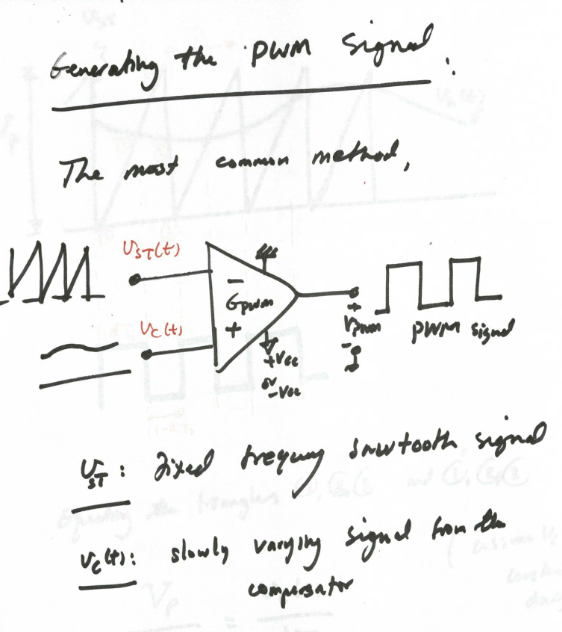 Generating the PWM Signal.
The most common method,
V_ST(t)
−
G_PWM
V_C(t)
+
+
V_PWM
−
PWM signal
+Vcc
or
−Vcc
V_ST : fixed frequency sawtooth signal
V_C(t): slowly varying signal from the
compensator